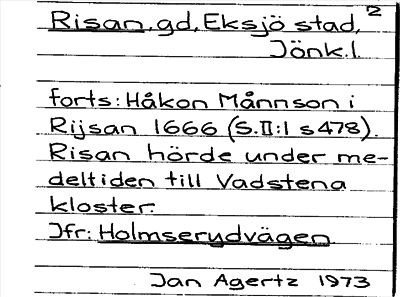 2
Risan, gd, Eksjö stad,
Jönk.l.
forts: Håkon Månnson i
Rijsan 1666 (S.II:1 s478).
Risan hörde under me-
deltiden till Vadstena
kloster.
Jfr: Holmserydvägen
Jan Agertz 1973